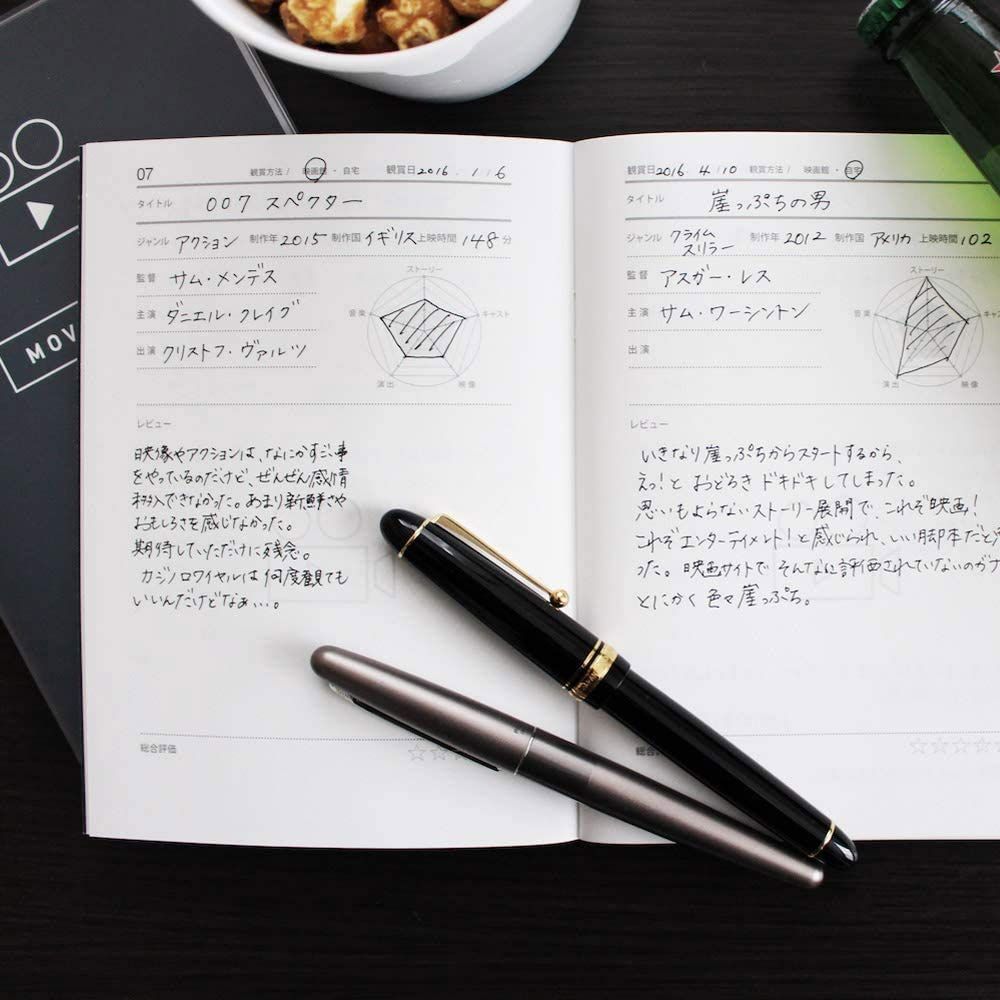 MOV
07 鑑賞方法 / 映画館・自宅 観賞日 2016. 1/6
タイトル 007 スペクター
ジャンル アクション 制作年 2015 制作国 イギリス 上映時間 148分
監督 サム・メンデス
主演 ダニエル・クレイグ
出演 クリストフ・ヴァルツ
ストーリー
音楽 キャスト
演出 映像
レビュー
映像やアクションは、なにかすごい事
をやっているのだけど、ぜんぜん感情
移入できなかった。あまり新鮮さや
おもしろさを感じなかった。
期待していただけに残念。
カジノロワイヤルは何度観ても
いいんだけどなぁ…。
総合評価 ☆☆
観賞日 2016. 4/10 観賞方法 / 映画館・自宅
タイトル 崖っぷちの男
ジャンル クライム
スリラー 制作年 2012 制作国 アメリカ 上映時間 102
監督 アスガー・レス
主演 サム・ワーシントン
出演
ストーリー
音楽 キャス
演出 映像
レビュー
いきなり崖っぷちからスタートするから、
えっ!と おどろき ドキドキしてしまった。
思いもよらないストーリー展開で、これぞ映画!
これぞエンターテイメント!と感じられ、いい脚本だと
った。映画サイトで そんなに評価されていないのが
とにかく 色々崖っぷち。
総合 ☆☆☆☆